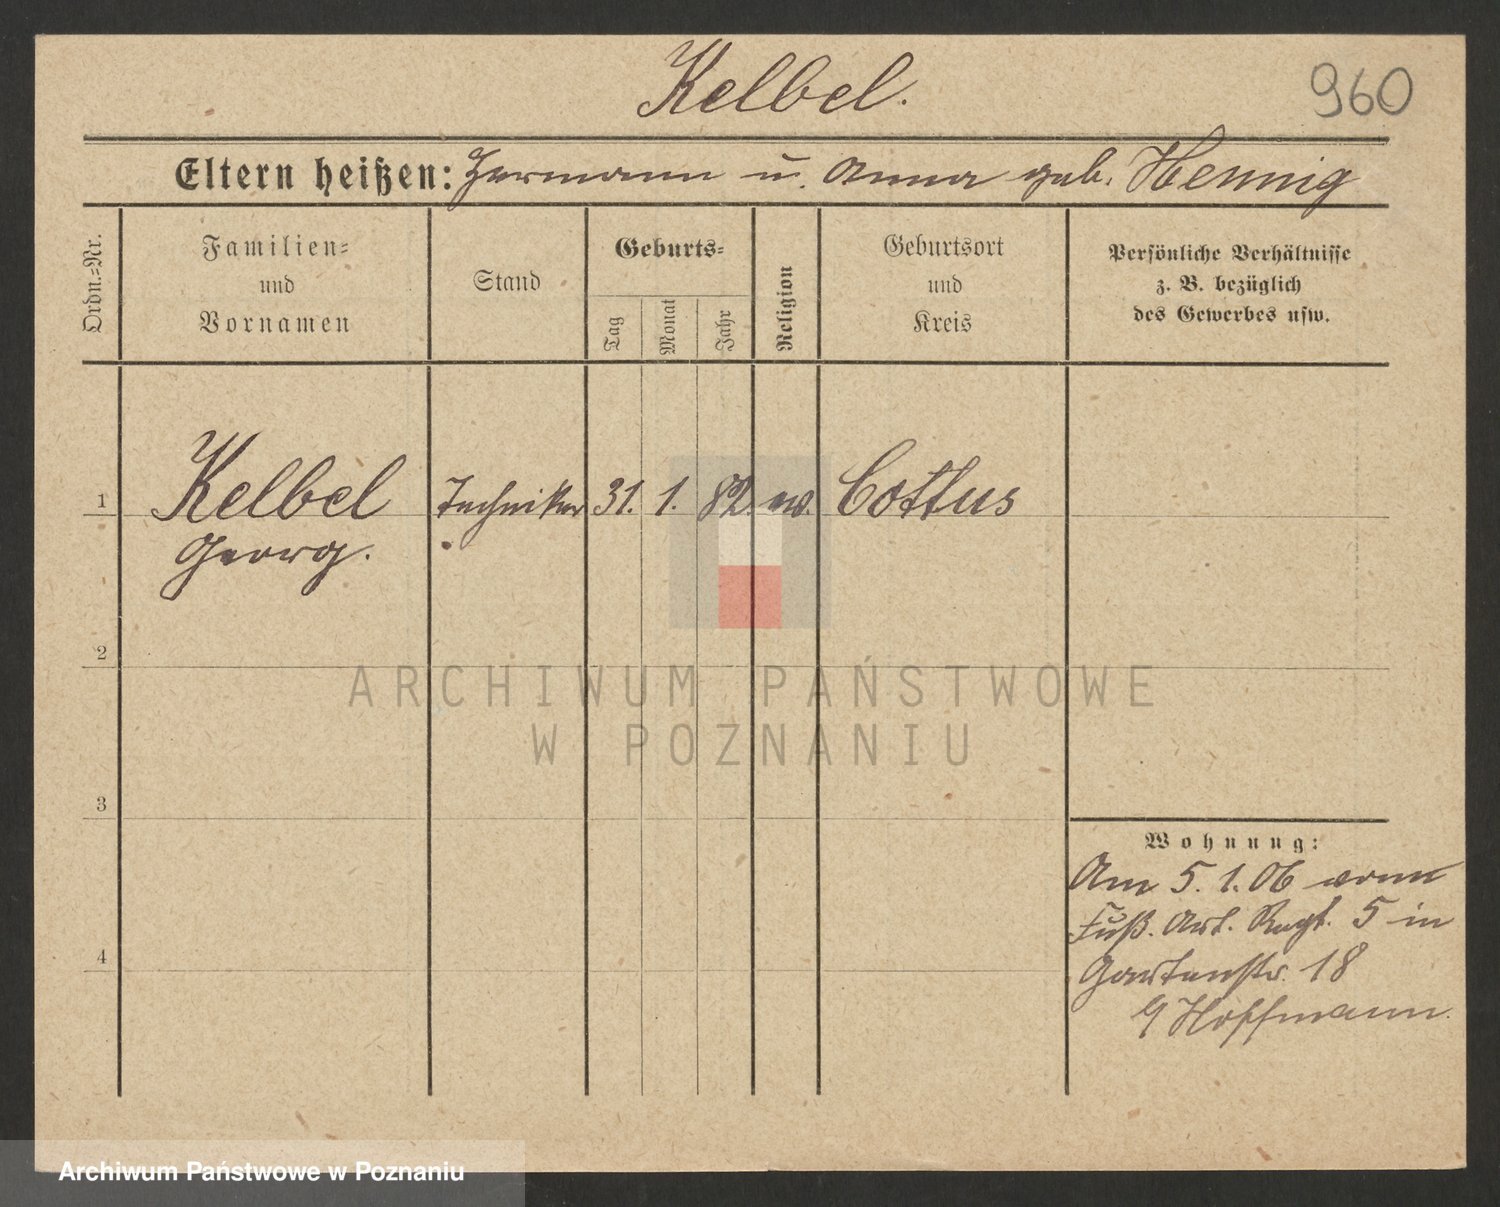 Kelbel.
960
Eltern heißen: Hermann u. Anna geb. Hennig
Ordn.=Nr.
Familien=
und
Vornamen
Stand
Geburts=
Tag
Monat
Jahr
Religion
Geburtsort
und
Kreis
Persönliche Verhältnisse
z. B. bezüglich
des Gewerbes usw.
1 Kelbel Techniker 31. 1. 82. ev. Cottbus
Georg.
2
3
4
Wohnung:
Am 5. 1. 06 vom
Fuß. Art. Regt. 5 in
Gartenstr. 18
Hoffmann.
ARCHIWUM PAŃSTWOWE
W POZNANIU
Archiwum Państwowe w Poznaniu